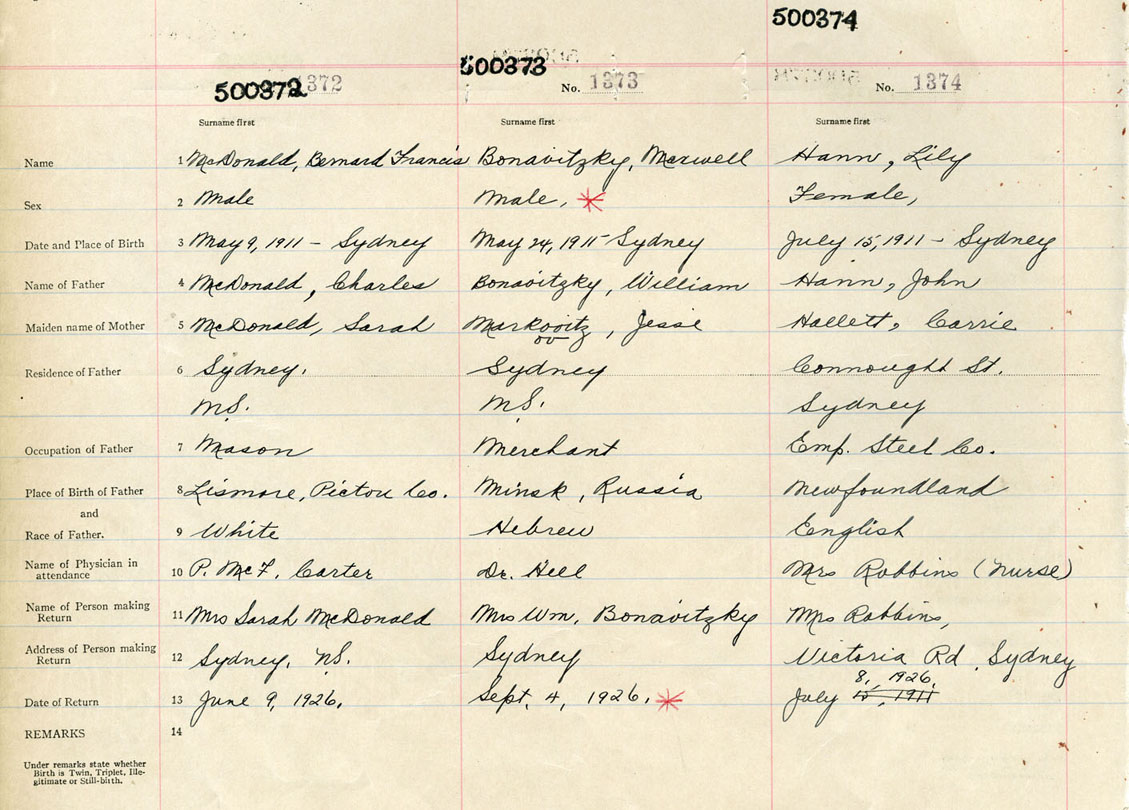 500374
500372 1372
500373
No. 1373
No. 1374
Surname first Surname first Surname first
Name 1 McDonald, Bernard Francis Bonavitzky, Maxwell Hann, Lily
Sex 2 Male Male, * Female,
Date and Place of Birth 3 May 9, 1911 - Sydney May 24, 1911 - Sydney July 15, 1911 - Sydney
Name of Father 4 McDonald, Charles Bonavitzky, William Hann, John
Maiden name of Mother 5 McDonald, Sarah Markovitz, Jesse Hallett, Carrie
ov
Residence of Father 6 Sydney. Sydney Connought St.
N.S. N.S. Sydney
Occupation of Father 7 Mason Merchant Emp. Steel Co.
Place of Birth of Father 8 Lismore, Pictou Co. Minsk, Russia Newfoundland
and
Race of Father. 9 White Hebrew English
Name of Physician in
attendance 10 P. McF. Carter Dr. Hell Mrs Robbins (Nurse)
Name of Person making
Return 11 Mrs Sarah McDonald Mrs Wm, Bonavitzky Mrs Robbins,
Address of Person making
Return 12 Sydney, N.S. Sydney Victoria Rd, Sydney
8, 1926,
Date of Return 13 June 9, 1926. Sept. 4, 1926. * July 15, 1911
REMARKS 14
Under remarks state whether
Birth is Twin, Triplet, Ille-
gitimate or Still-birth.